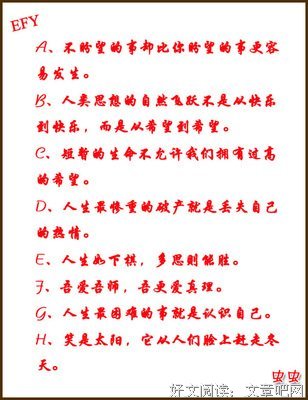 EFY
A、不盼望的事却比你盼望的事更容
易发生。
B、人类思想的自然飞跃不是从快乐
到快乐，而是从希望到希望。
C、短暂的生命不允许我们拥有过高
的希望。
D、人生最惨重的破产就是丢失自己
的热情。
E、人生如下棋，多思则能胜。
F、吾爱吾师，吾更爱真理。
G、人生最困难的事就是认识自己。
H、笑是太阳，它从人们脸上赶走冬
天。
虫虫
好文阅读：文章吧网